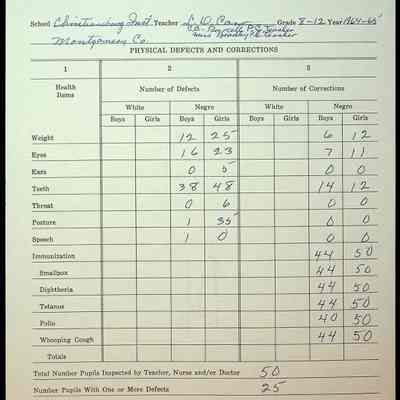 School Christiansburg Inst. Teacher L. D. Cam Grade 8-12 Year 1964-65
P.E. Teacher
Miss Bradley P.E. Teacher
Montgomery Co.
PHYSICAL DEFECTS AND CORRECTIONS
1 2 3
Health Items Number of Defects Number of Corrections
White Negro White Negro
Boys Girls Boys Girls Boys Girls Boys Girls
Weight 12 25 6 12
Eyes 16 23 7 11
Ears 0 5 0 0
Teeth 38 48 14 12
Throat 0 6 0 0
Posture 1 35 0 0
Speech 1 0 0 0
Immunization 44 50
Smallpox 44 50
Diphtheria 44 50
Tetanus 44 50
Polio 40 50
Whooping Cough 44 50
Totals
Total Number Pupils Inspected by Teacher, Nurse and/or Doctor 50
Number Pupils With One or More Defects 25